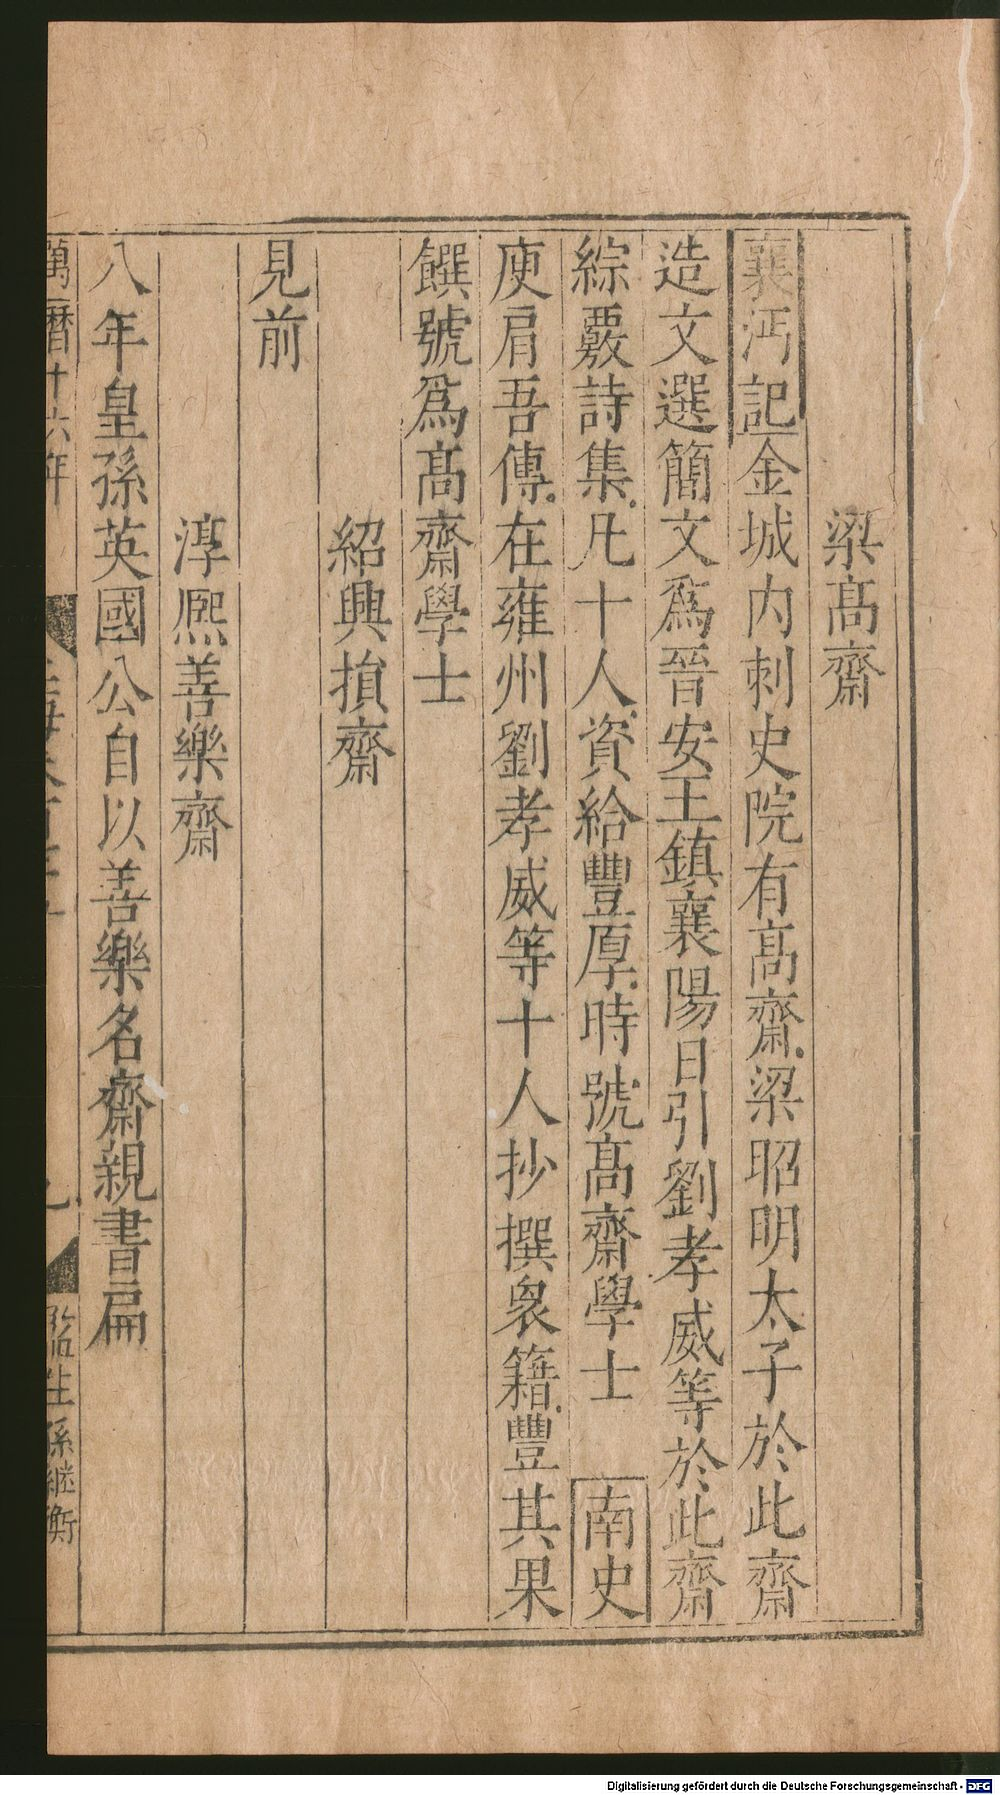 梁髙齋
襄沔記金城内刺史院有髙齋梁昭明太子於此齋
造文選簡文爲晉安王鎮襄陽日引劉孝威等於此齋
綜覈詩集凡十人資給豐厚時號髙齋學士 南史
庾肩吾傳在雍州劉孝威等十人抄撰衆籍豐其果
饌號爲髙齋學士
紹興損齋
見前
淳熈善樂齋
八年皇孫英國公自以善樂名齋親書扁
萬曆十六年
監生孫繼衡
Digitalisierung gefördert durch die Deutsche Forschungsgemeinschaft - DFG